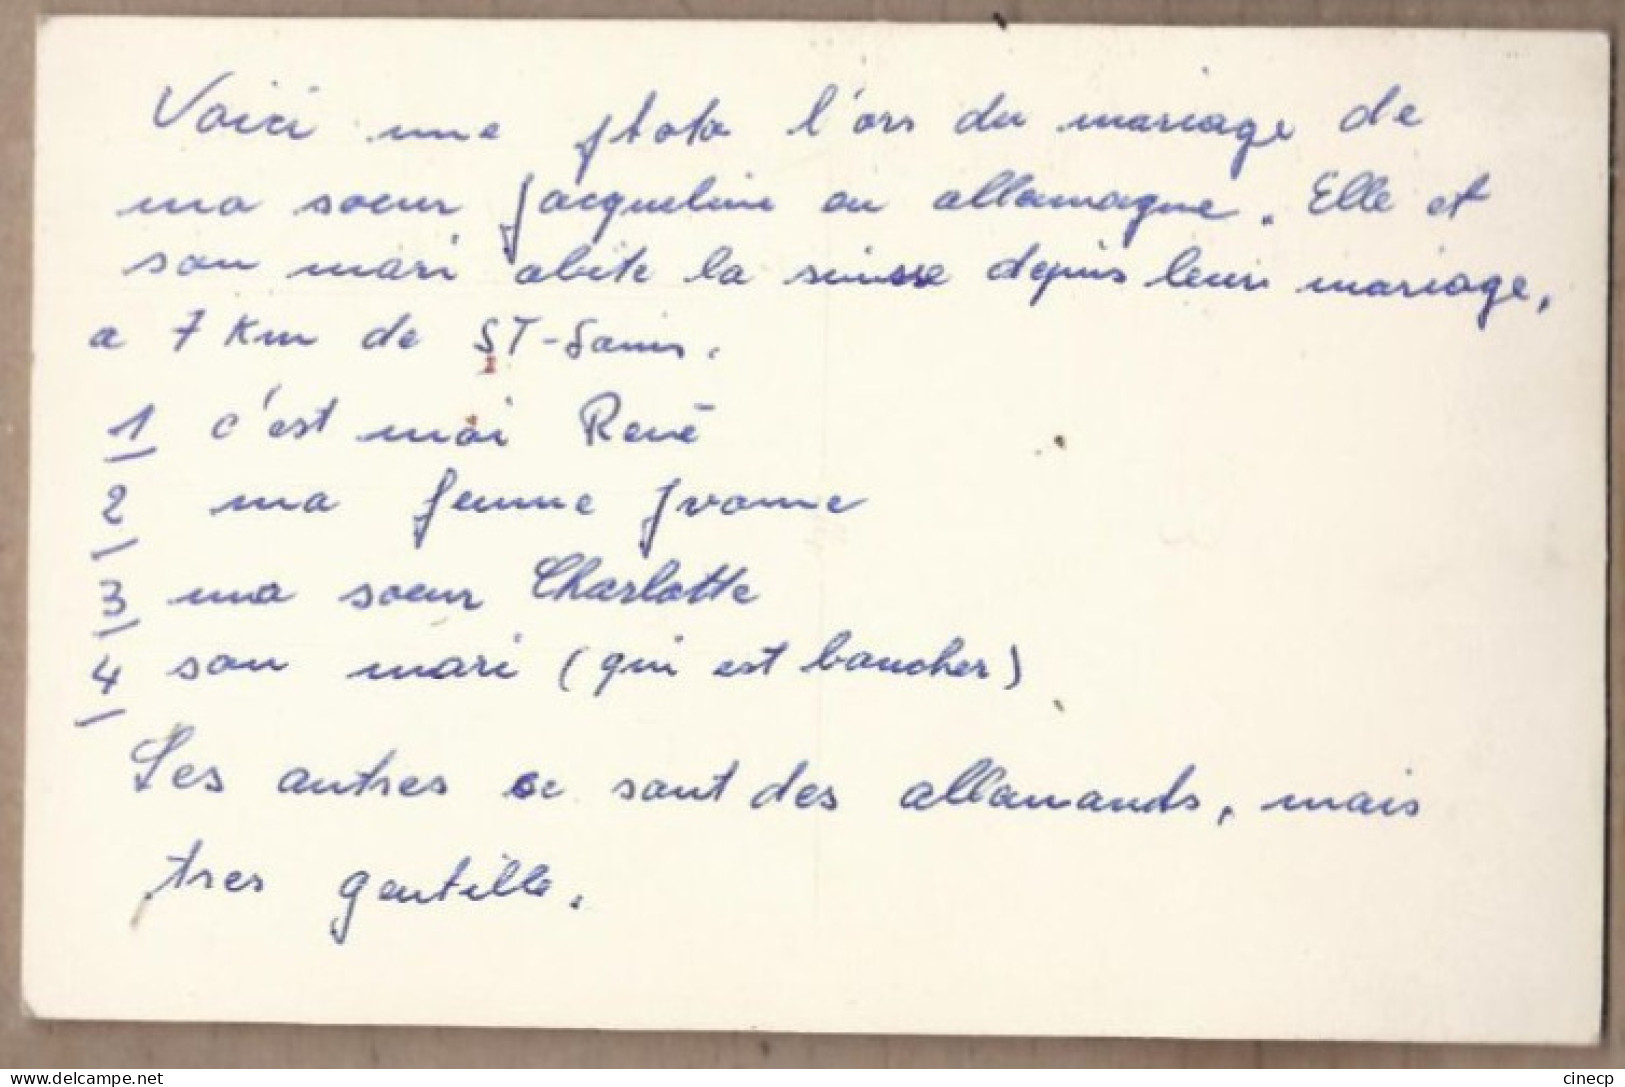 Voici une photo l'ors du mariage de
ma soeur Jacqueline en allemagne. Elle et
son mari abite la suisse depuis leur mariage,
a 7 Km de ST-Louis.
1 c'est moi René
2 ma femme Yvonne
3 ma soeur Charlotte
4 son mari (qui est boucher)
Les autres ce sont des allemands, mais
tres gentille.
cinecp